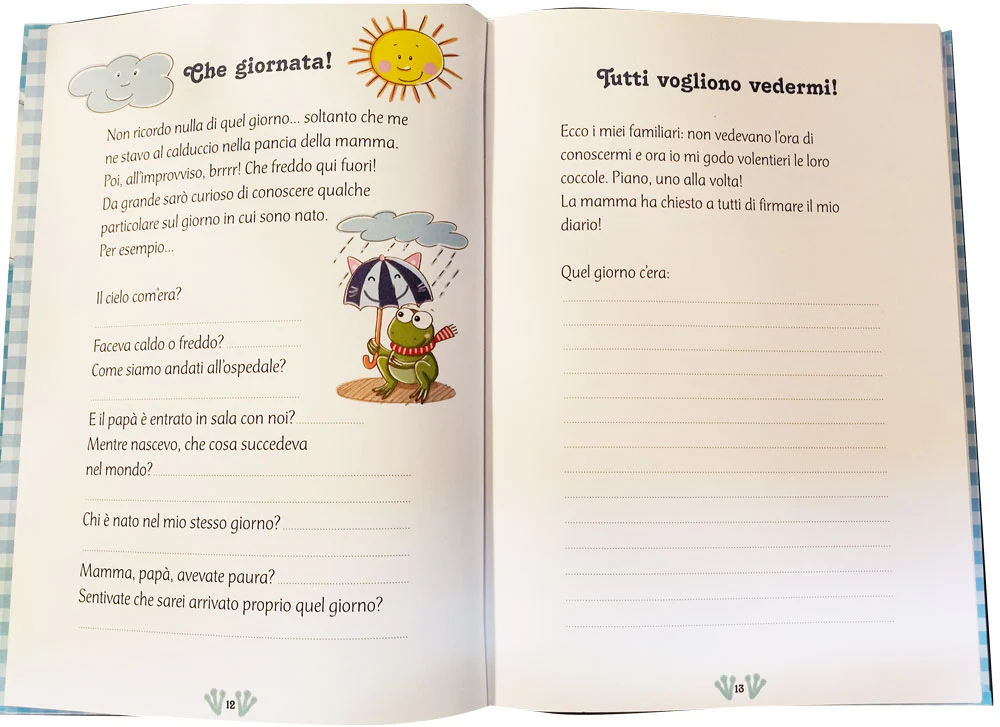 Che giornata!
Non ricordo nulla di quel giorno... soltanto che me
ne stavo al calduccio nella pancia della mamma.
Poi, all'improvviso, brrrr! Che freddo qui fuori!
Da grande sarò curioso di conoscere qualche
particolare sul giorno in cui sono nato.
Per esempio...
Il cielo com'era?
Faceva caldo o freddo?
Come siamo andati all'ospedale?
E il papà è entrato in sala con noi?
Mentre nascevo, che cosa succedeva
nel mondo?
Chi è nato nel mio stesso giorno?
Mamma, papà, avevate paura?
Sentivate che sarei arrivato proprio quel giorno?
12
Tutti vogliono vedermi!
Ecco i miei familiari: non vedevano l'ora di
conoscermi e ora io mi godo volentieri le loro
coccole. Piano, uno alla volta!
La mamma ha chiesto a tutti di firmare il mio
diario!
Quel giorno c'era:
13